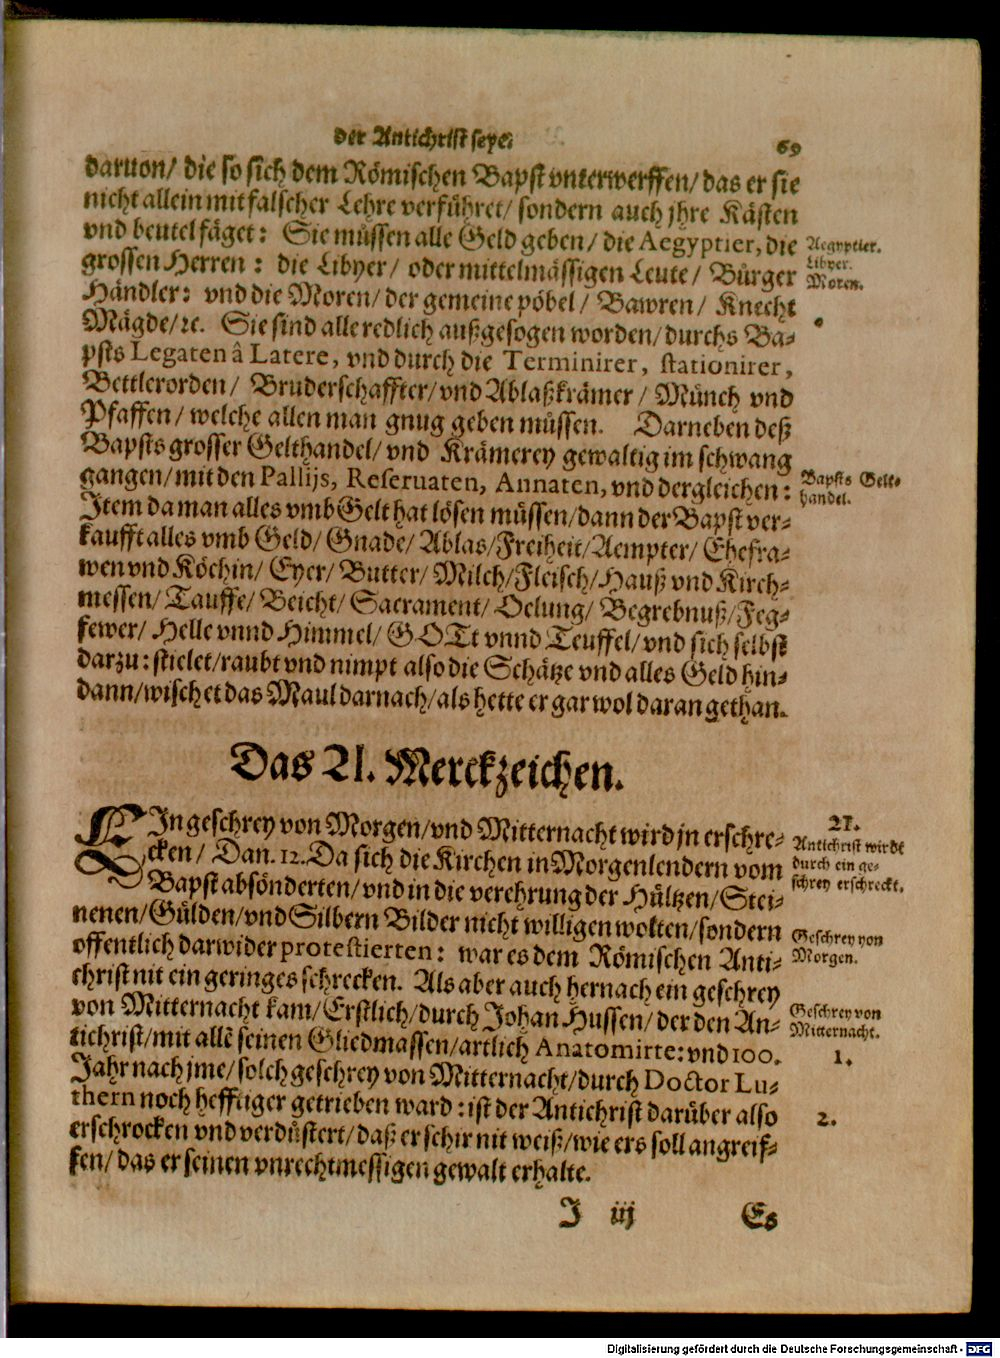 der Antichrist seye.
69
daruon/ die so sich dem Römischen Bapst vnterwerffen/ das er sie
nicht allein mit falscher Lehre verführet/ sondern auch jhre Kästen
vnd beutel fäget: Sie müssen alle Geld geben/ die Aegyptier, die
Aegyptier.
grossen Herren: die Libyer/ oder mittelmässigen Leute/ Bürger
Libyer.
Händler: vnd die Moren/ der gemeine pöbel/ Bawren/ Knecht
Moren.
Mägde/ ꝛc. Sie sind alle redlich außgesogen worden/ durchs Ba-
psts Legaten â Latere, vnd durch die Terminirer, stationirer,
Bettlerorden/ Bruderschaffter/ vnd Ablaßkrämer/ Münch vnd
Pfaffen/ welche allen man gnug geben müssen. Darneben deß
Bapsts grosser Gelthandel/ vnd Krämerey gewaltig im schwang
gangen/ mit den Pallijs, Reseruaten, Annaten, vnd dergleichen:
Bapsts Gelt-
handel.
Item da man alles vmb Gelt hat lösen müssen/ dann der Bapst ver-
kaufft alles vmb Geld/ Gnade/ Ablas/ Freiheit/ Aempter/ Ehefra-
wen vnd Köchin/ Eyer/ Butter/ Milch/ Fleisch/ Hauß vnd Kirch-
messen/ Tauffe/ Beicht/ Sacrament/ Oelung/ Begrebnuß/ Feg-
fewer/ Helle vnnd Himmel/ GOTt vnnd Teuffel/ vnd sich selbst
darzu: stielet/ raubt vnd nimpt also die Schätze vnd alles Geld hin-
dann/ wischet das Maul darnach/ als hette er gar wol daran gethan.
Das 21. Merckzeichen.
EIn geschrey von Morgen/ vnd Mitternacht wird jn erschre-
21.
Antichrist wirdt
durch ein ge-
schrey erschreckt.
cken/ Dan. 12. Da sich die Kirchen in Morgenlendern vom
Bapst absönderten/ vnd in die verehrung der Hültzen/ Stei-
nenen/ Gülden/ vnd Silbern Bilder nicht willigen wolten/ sondern
offentlich darwider protestierten: war es dem Römischen Anti-
Geschrey von
Morgen.
christ nit ein geringes schrecken. Als aber auch hernach ein geschrey
von Mitternacht kam/ Erstlich/ durch Johan Hussen/ der den An-
Geschrey von
Mitternacht.
tichrist/ mit allē seinen Gliedmassen/ artlich Anatomirte: vnd 100.
1.
Jahr nach jme/ solch geschrey von Mitternacht/ durch Doctor Lu-
thern noch hefftiger getrieben ward: ist der Antichrist darüber also
2.
erschrocken vnd verdüstert/ daß er schir nit weiß/ wie ers soll angreif-
fen/ das er seinen vnrechtmessigen gewalt erhalte.
I iij
Es
Digitalisierung gefördert durch die Deutsche Forschungsgemeinschaft - DFG